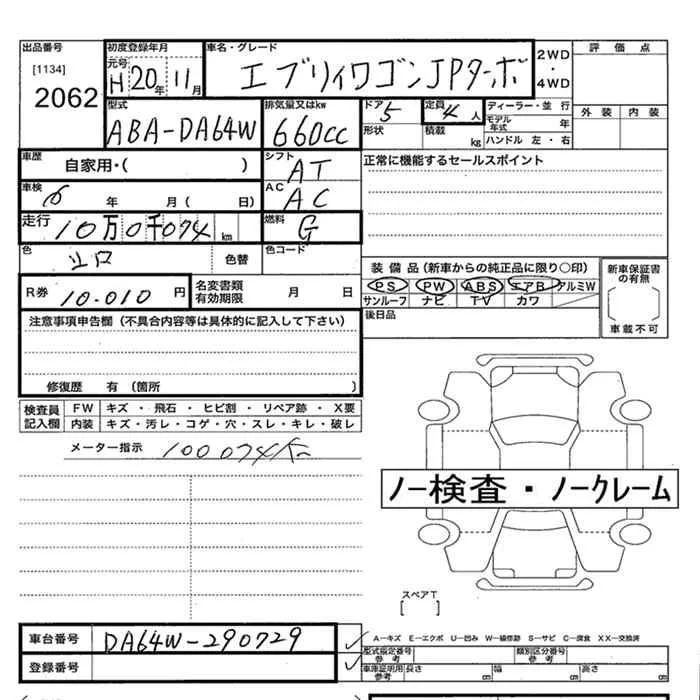 出品番号 初度登録年月 車名・グレード 評価点
[1134] 元号 H20年11月 エブリィワゴンJPターボ 2WD・4WD
2062 型式 ABA-DA64W 排気量又はkw 660cc ドア 5 定員 4人 ディーラー・並行 外装 内装
形状 積載 kg モデル年式 年
ハンドル 左・右
車歴 自家用・( ) シフト AT 正常に機能するセールスポイント
車検 年 月( 日) AC AC
走行 10万0千074km 燃料 G
色 色替 色コード
装備品(新車からの純正品に限り○印) 新車保証書の有無
PS PW ABS エアB アルミW
サンルーフ ナビ TV カワ
車載不可
R券 10.010円 名変書類有効期限 月 日 後日品
注意事項申告欄(不具合内容等は具体的に記入して下さい)
修復歴 有(箇所 )
検査員記入欄 FW キズ・飛石・ヒビ割・リペア跡・X要
内装 キズ・汚レ・コゲ・穴・スレ・キレ・破レ
メーター指示 100074
ノー検査・ノークレーム
スペアT
[ ]
車台番号 DA64W-290729
A-キズ E-エクボ U-凹み W-補修跡 S-サビ C-腐食 XX-交換済
型式指定番号参考 類別区分番号参考
登録番号
車庫証明用参考 長さ cm 幅 cm 高さ cm